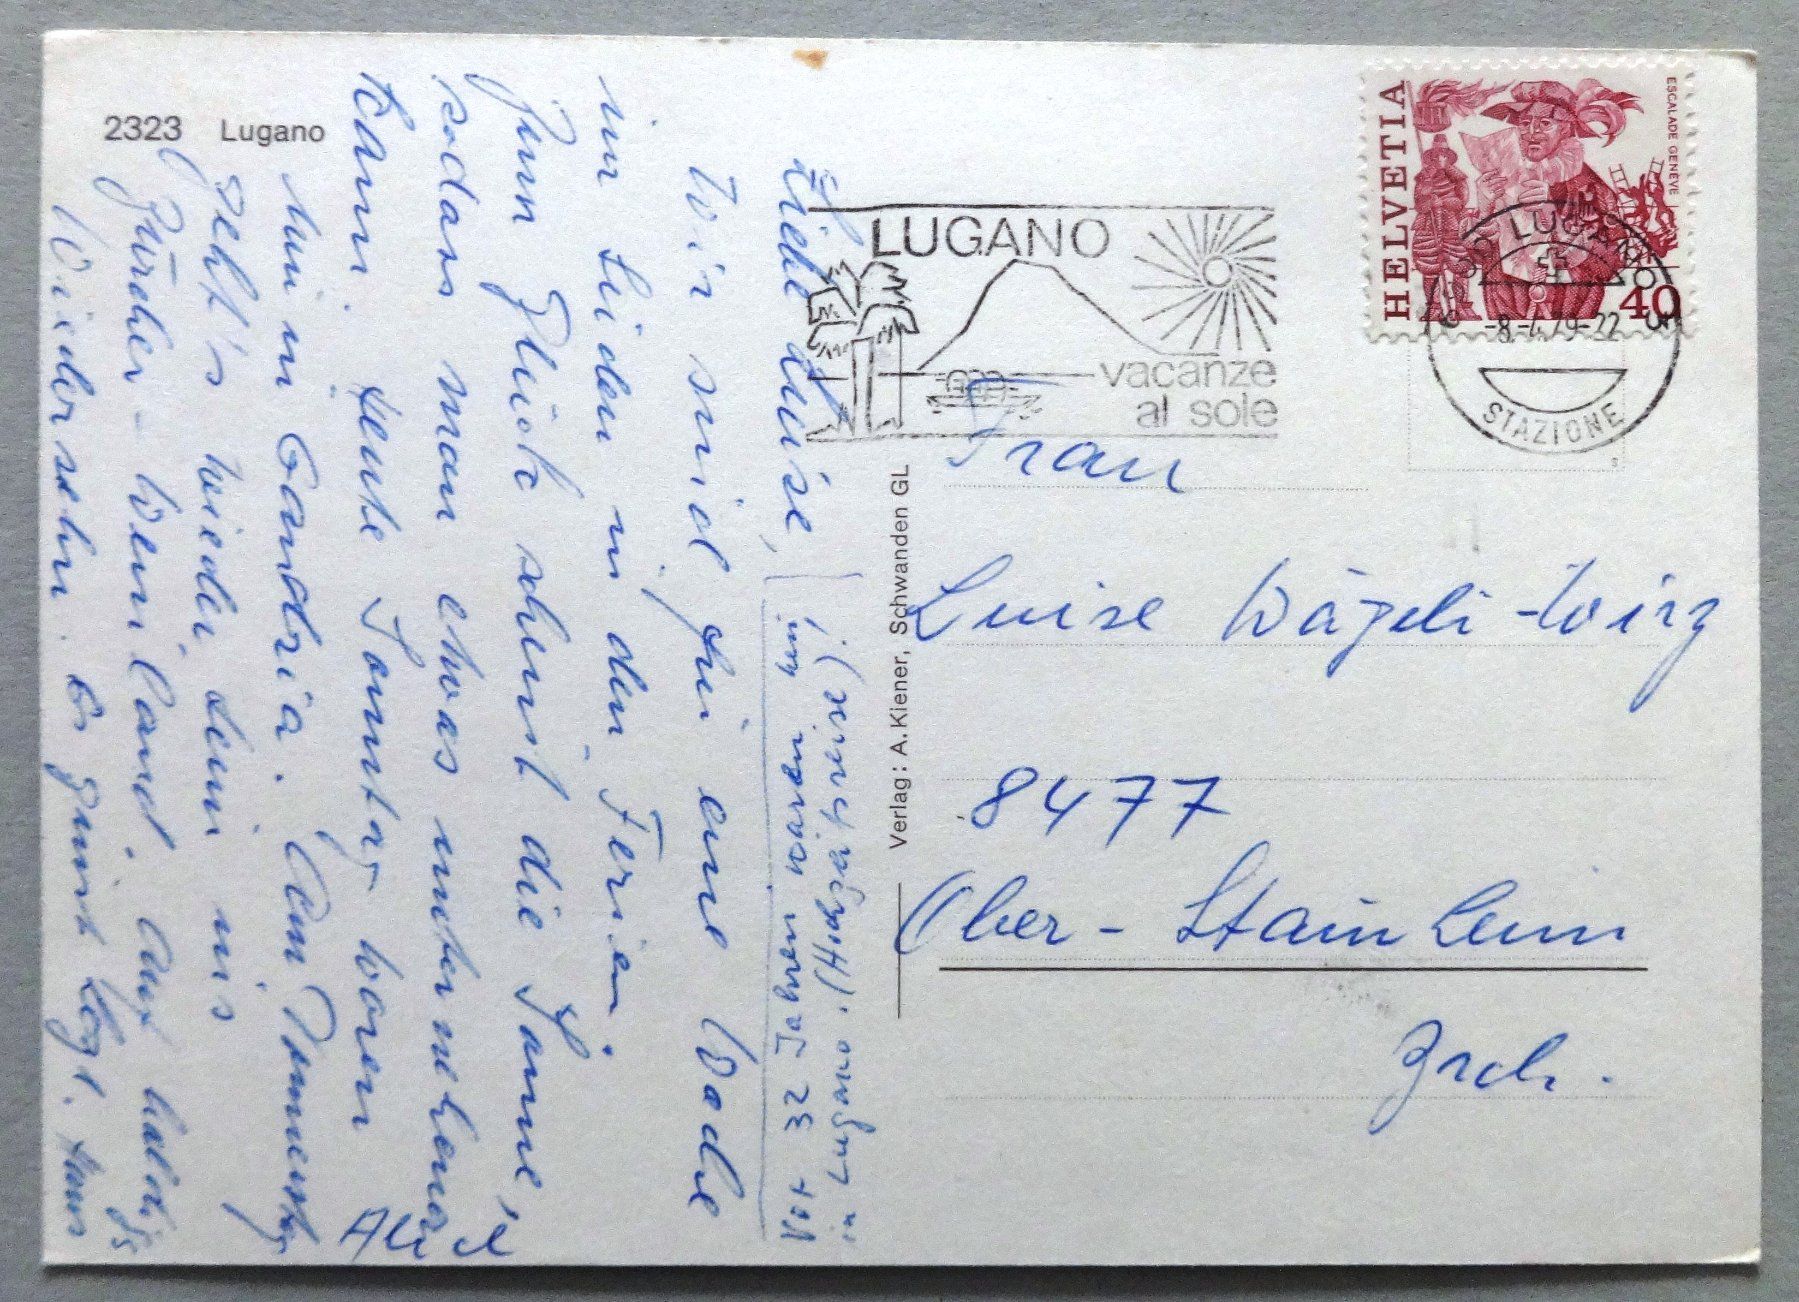 2323 Lugano
Liebe Luise,
Wir sind für eine Woche
im Süden in den Ferien.
Zum Glück scheint die Sonne,
sodass man etwas unternehmen
kann. Heute Sonntag waren
wir in Gandria. Am Donnerstag
geht's wieder heim ins
Zürcher-Weinland. Auf baldiges
Wiedersehn. Es grüsst Hans
Alice
Vor 32 Jahren waren wir
in Lugano. (Hochzeitsreise).
Verlag: A. Kiener, Schwanden GL
LUGANO
vacanze
al sole
HELVETIA
ESCALADE GENÈVE
40
LUGANO
-8.-4.79-22
STAZIONE
Frau
Luise Wägeli-Wirz
8477
Ober-Stammheim
Zrch.